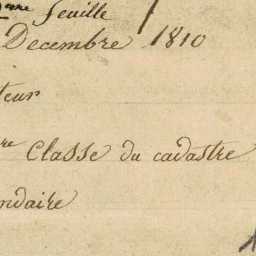 2.eme feuille
Decembre 1810
teur
re Classe du cadastre
ndaire